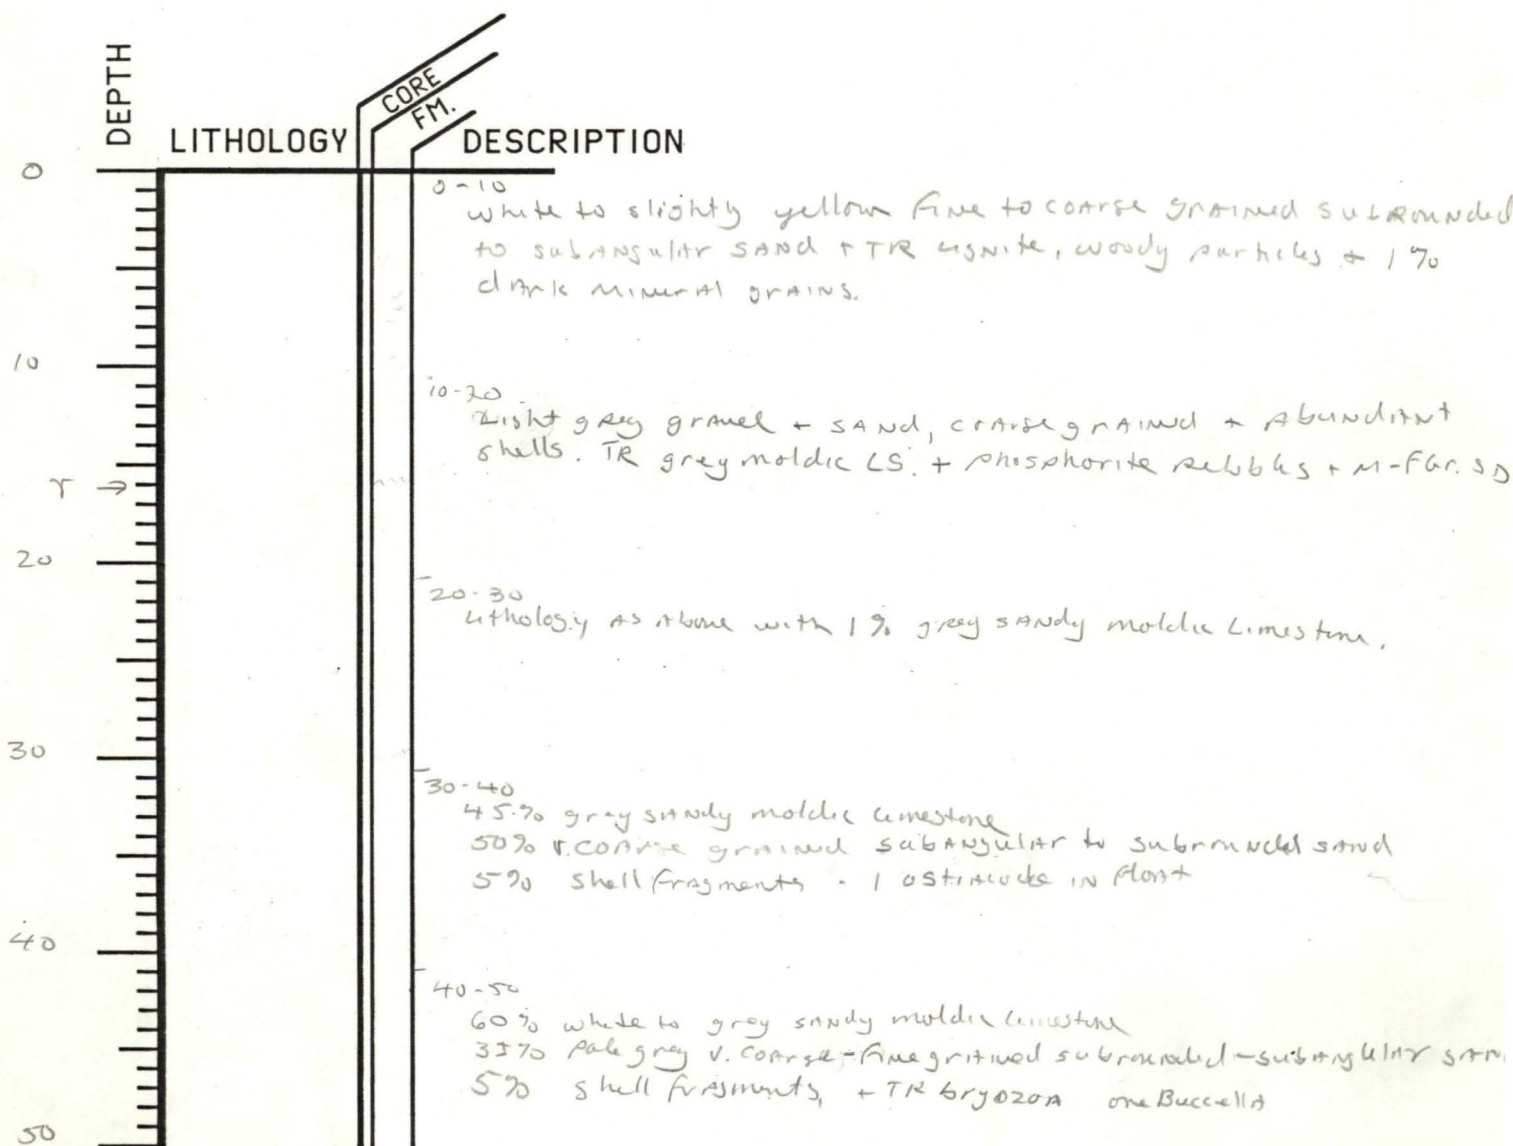 DEPTH
LITHOLOGY
CORE
FM.
DESCRIPTION
0
0-10
white to slightly yellow fine to coarse grained subrounded
to subangular sand + TR lignite, woody particles + 1%
dark mineral grains.
10
10-20
Light grey gravel + sand, coarse grained + Abundant
shells. TR grey moldic LS. + phosphorite pebbles + M-FGr. SD
T →
20
20-30
Lithology as above with 1% grey sandy moldic Limestone.
30
30-40
45% gray sandy moldic limestone
50% v. coarse grained subangular to subrounded sand
5% shell fragments - 1 ostracode in float
40
40-50
60% white to gray sandy moldic limestone
35% pale grey v. coarse-fine grained subrounded-subangular
5% shell fragments, + TR bryozoa one Buccella
50